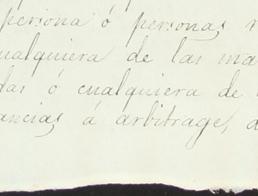 persona ó personas
cualquiera de las
das ó cualquiera de
ancias á arbitrage,